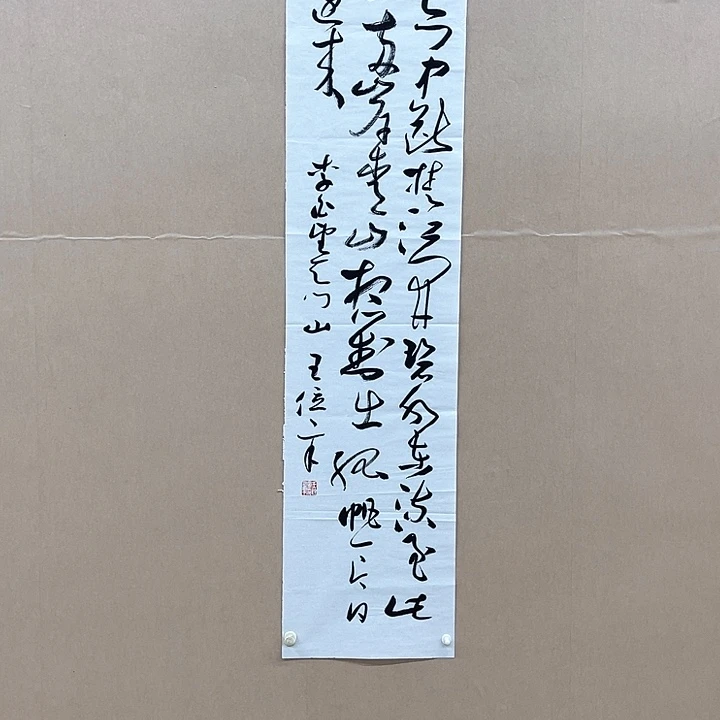 中断楚江开碧水东流至此
两岸青山相对出孤帆一片日
边来
李白望天门山